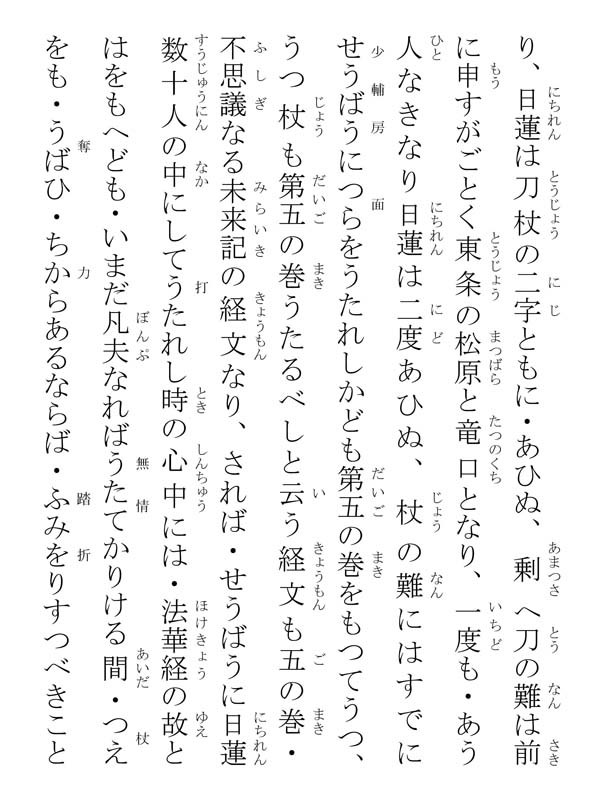 り、日蓮は刀杖の二字ともに・あひぬ、剰へ刀の難は前
に申すがごとく東条の松原と竜口となり、一度も・あう
人なきなり日蓮は二度あひぬ、杖の難にはすでに
せうばうにつらをうたれしかども第五の巻をもつてうつ、
うつ杖も第五の巻うたるべしと云う経文も五の巻・
不思議なる未来記の経文なり、されば・せうばうに日蓮
数十人の中にしてうたれし時の心中には・法華経の故と
はをもへども・いまだ凡夫なればうたてかりける間・つえ
をも・うばひ・ちからあるならば・ふみをりすつべきこと